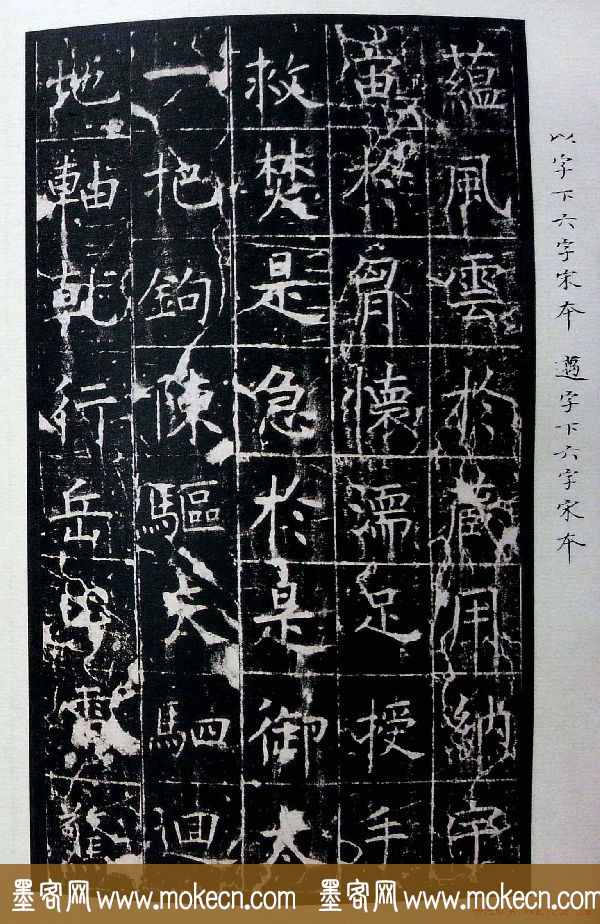 以字下六字宋本 邁字下六字宋本
蘊風雲於藏用納宇
宙於胷懷濡足授手
救焚是急於是御太
一把鉤陳驅天駟迴
地軸乾行岳
墨客网 www.mokecn.com 墨客网 www.mokecn.com